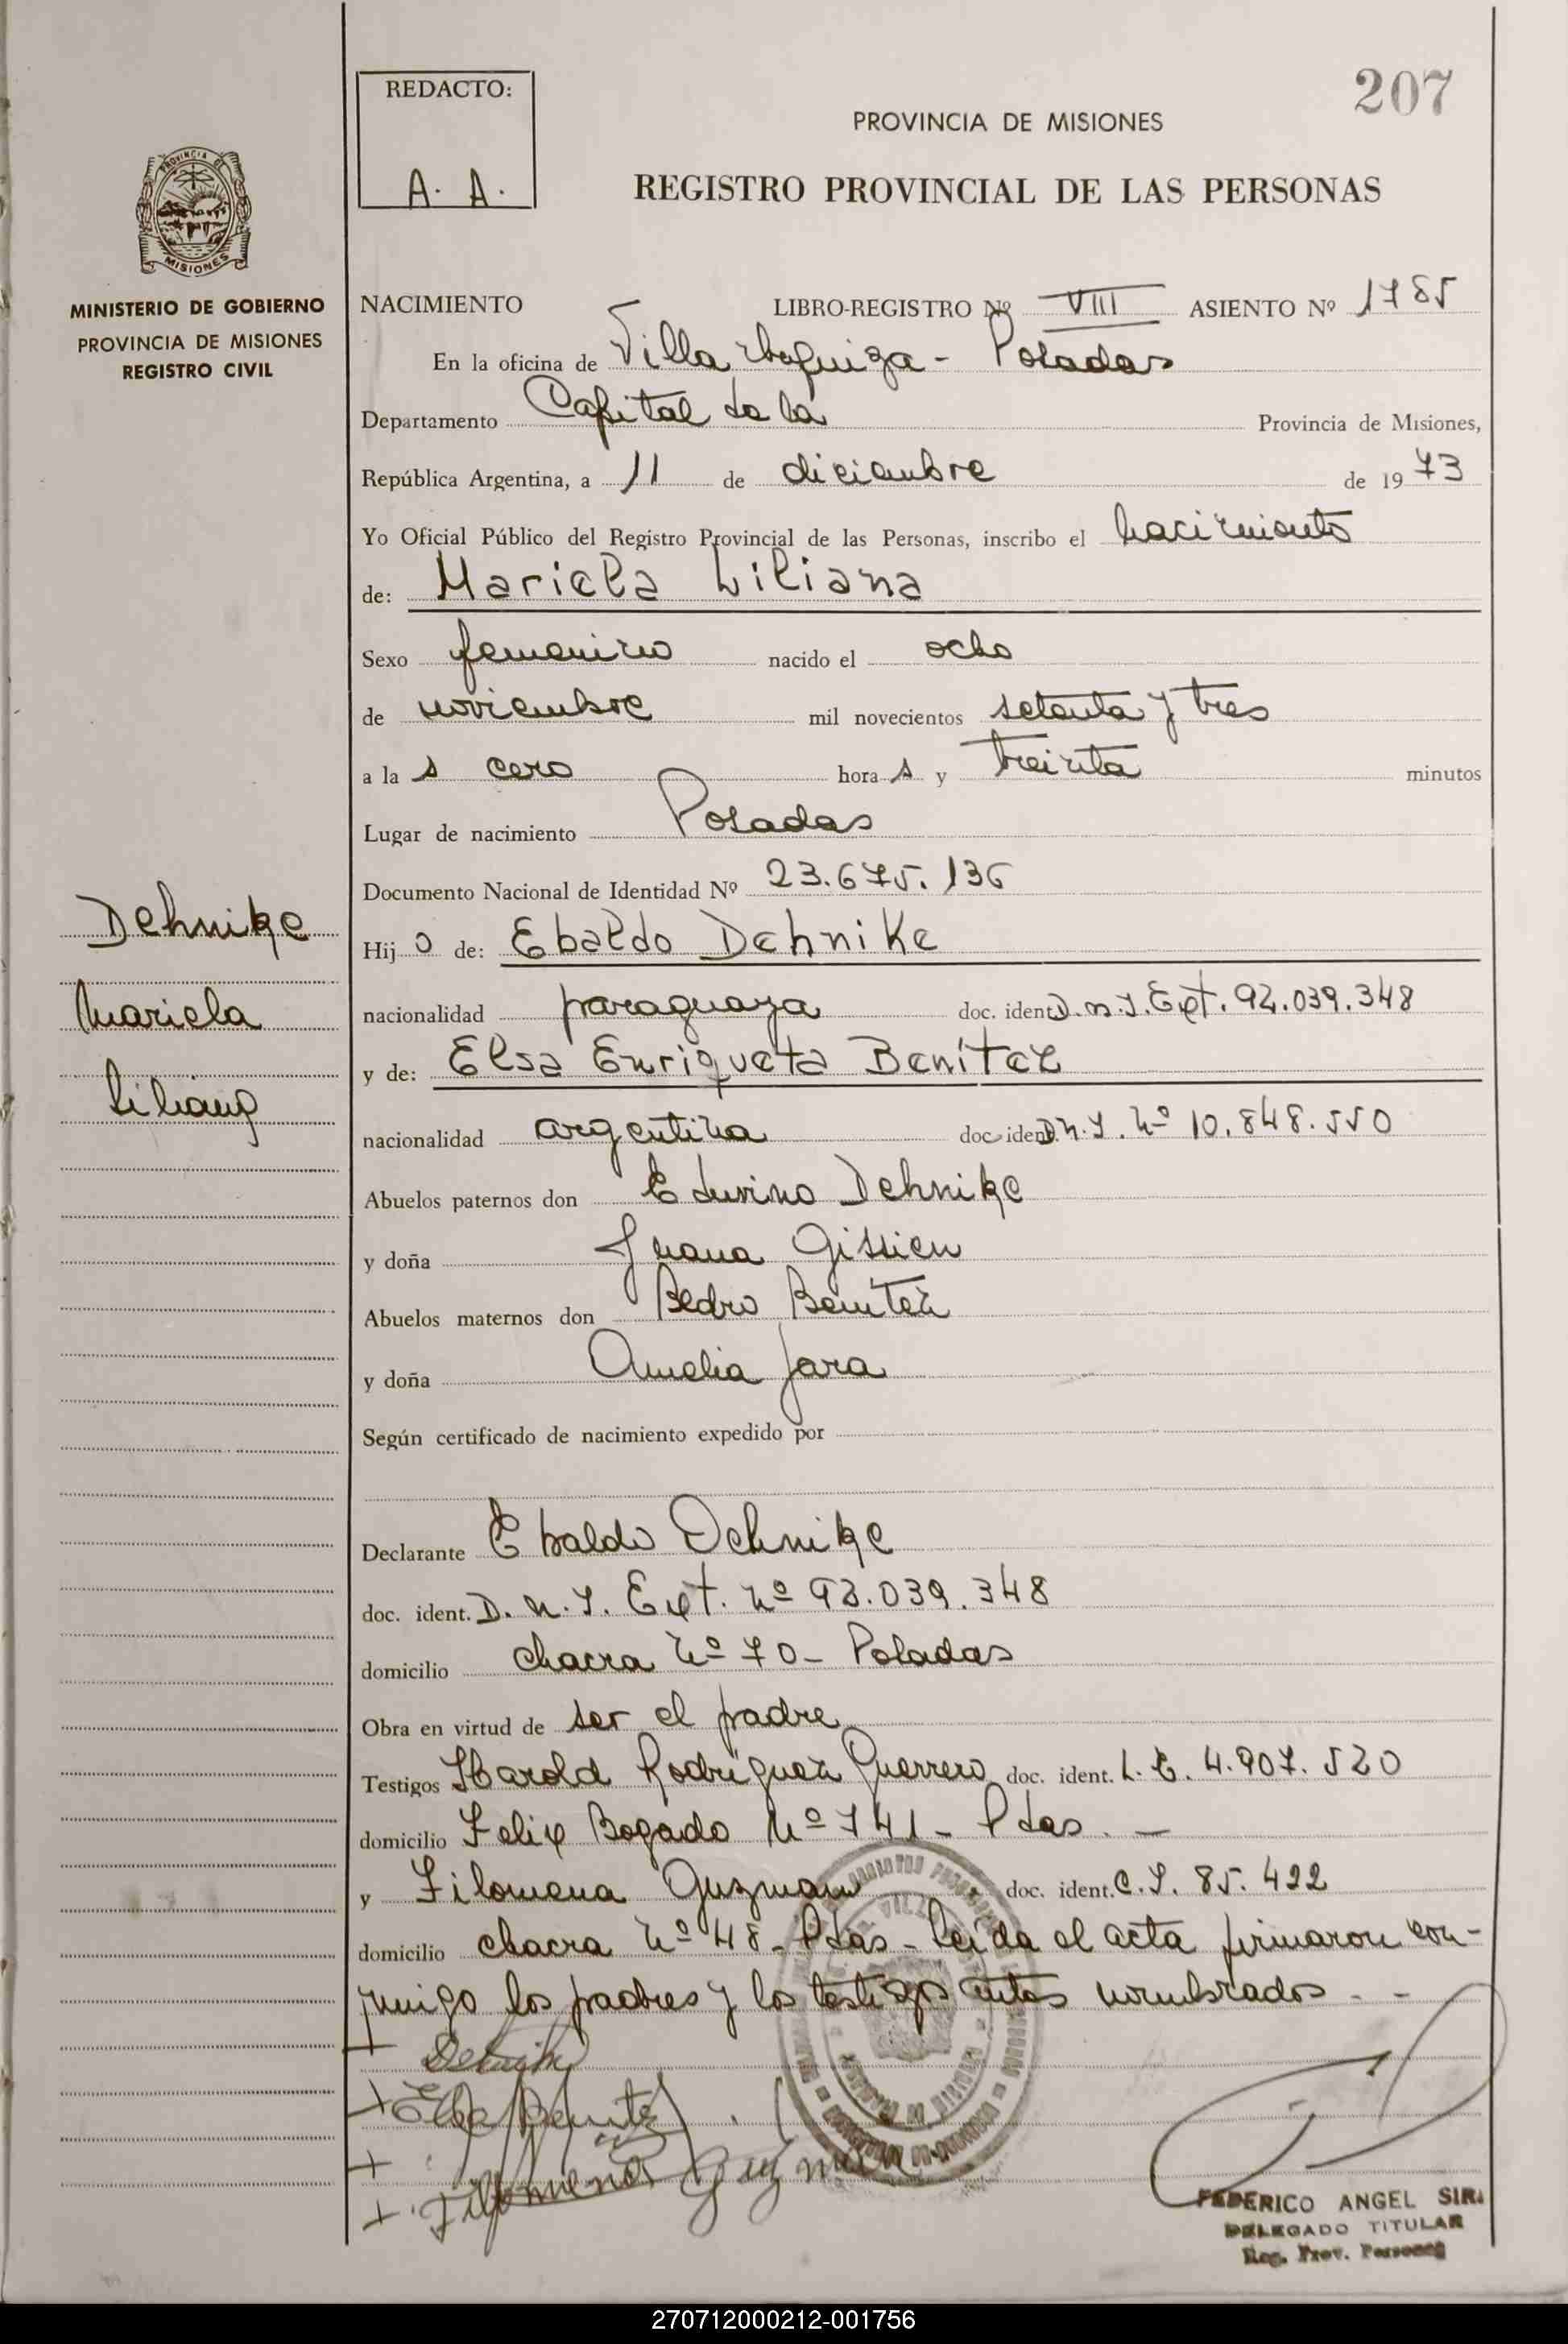 207
REDACTO:
A. A.
PROVINCIA DE MISIONES
REGISTRO PROVINCIAL DE LAS PERSONAS
PROVINCIA DE
MISIONES
MINISTERIO DE GOBIERNO
PROVINCIA DE MISIONES
REGISTRO CIVIL
NACIMIENTO LIBRO-REGISTRO Nº VIII ASIENTO Nº 1785
En la oficina de Villa Urquiza - Posadas
Departamento Capital de la Provincia de Misiones,
República Argentina, a 11 de diciembre de 1973
Yo Oficial Público del Registro Provincial de las Personas, inscribo el nacimiento
de: Mariela Liliana
Sexo femenino nacido el ocho
de noviembre mil novecientos setenta y tres
a las cero horas y treinta minutos
Lugar de nacimiento Posadas
Documento Nacional de Identidad Nº 23.675.136
Dehnike
Mariela
Liliana
Hijo de: Ebaldo Dehnike
nacionalidad paraguaya doc. ident D.N.I. Ext. 92.039.348
y de: Elsa Enriqueta Benítez
nacionalidad argentina doc. ident D.N.I. Nº 10.848.550
Abuelos paternos don Eduvino Dehnike
y doña Juana Gissien
Abuelos maternos don Pedro Benitez
y doña Amelia Jara
Según certificado de nacimiento expedido por
Declarante Ebaldo Dehnike
doc. ident. D.N.I. Ext. Nº 93.039.348
domicilio chacra Nº 70 - Posadas
Obra en virtud de ser el padre
Testigos Harold Rodríguez Guerrero doc. ident. L.E. 4.907.520
domicilio Felix Bogado Nº 741 - Pdas. -
y Filomena Guzman doc. ident. C.I. 85.422
domicilio chacra Nº 48 - Pdas - Leída el acta firmaron con-
migo los padres y los testigos antes nombrados . -
Dehnike
Elsa Benitez
Filomena Guzman
FEDERICO ANGEL SIR
DELEGADO TITULAR
Reg. Prov. Personas
270712000212-001756